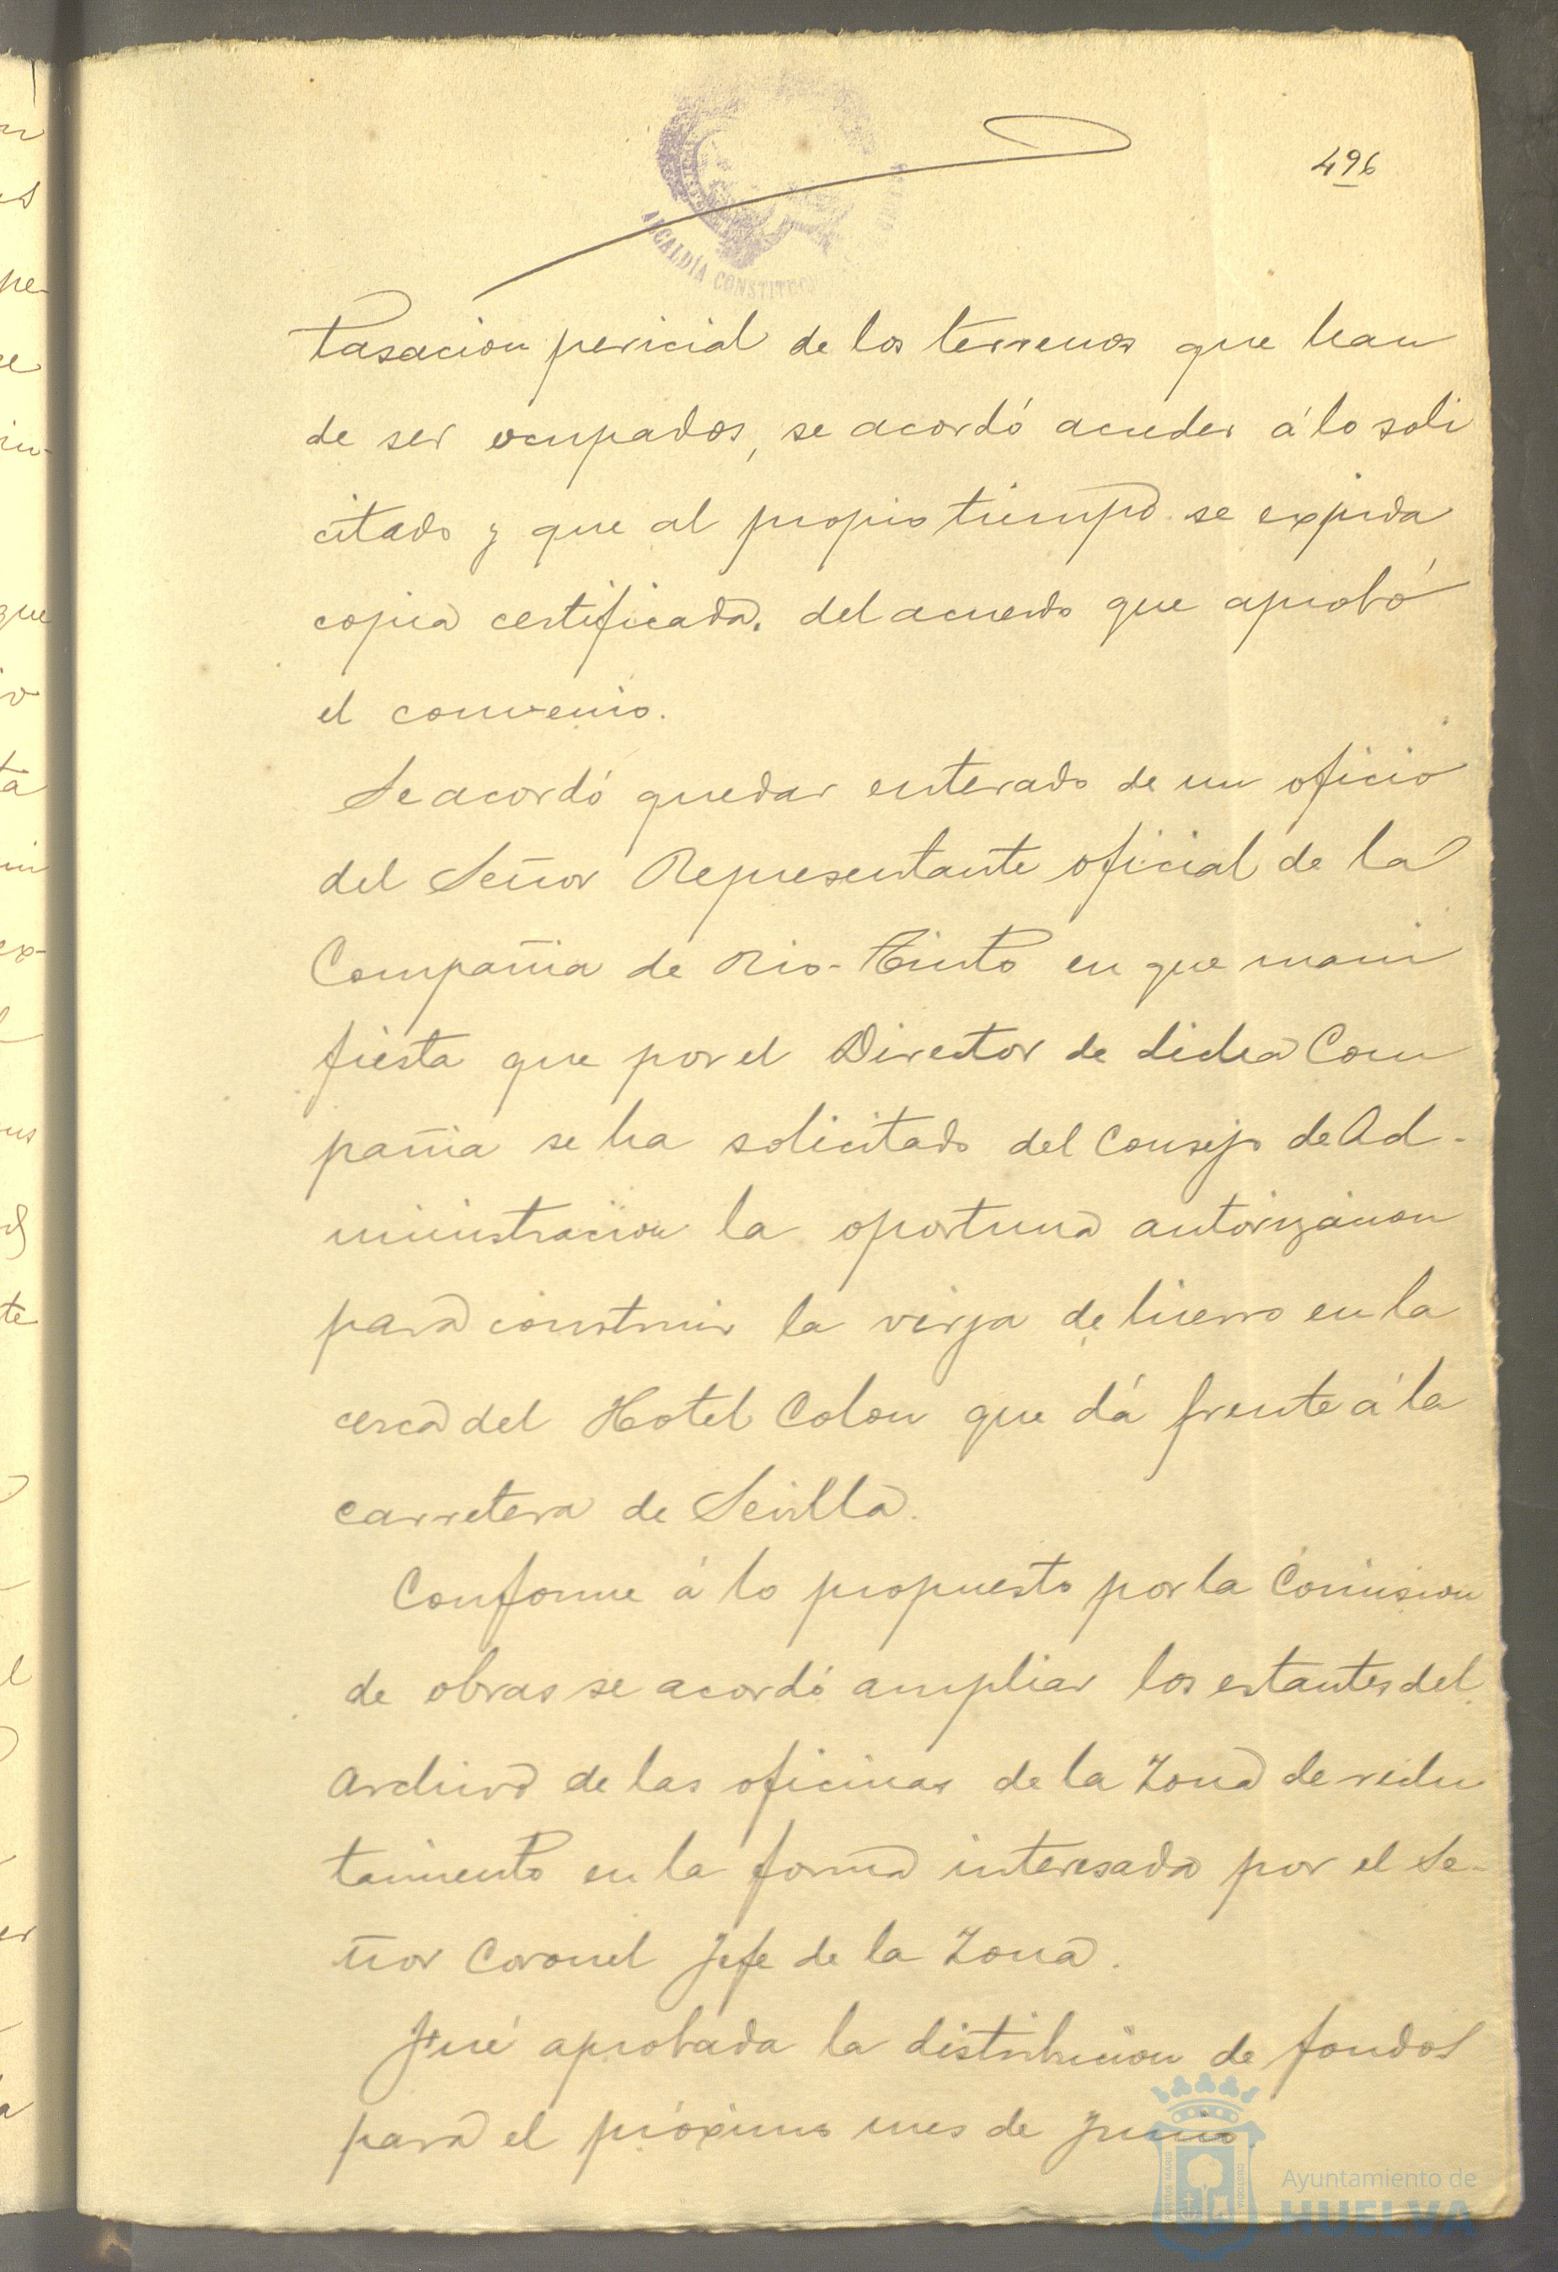 496
ALCALDÍA CONSTITUC
tasacion pericial de los terrenos que han
de ser ocupados, se acordó acceder á lo soli
citado y que al propio tiempo se expida
copia certificada. del acuerdo que aprobó
el convenio.
Se acordó quedar enterado de un oficio
del Señor Representante oficial de la
Compañia de Rio-Tinto en que mani
fiesta que por el Director de dicha Com
pañia se ha solicitado del Consejo de Ad-
ministracion la oportuna autorizacion
para construir la verja de hierro en la
cerca del Hotel Colon que dá frente á la
carretera de Sevilla.
Conforme á lo propuesto por la Comision
de obras se acordó ampliar los estantes del
Archivo de las oficinas de la Zona de reclu
tamiento en la forma interesada por el Se-
ñor Coronel Jefe de la Zona.
Fué aprobada la distribucion de fondos
para el próximo mes de Junio.
Ayuntamiento de
HUELVA